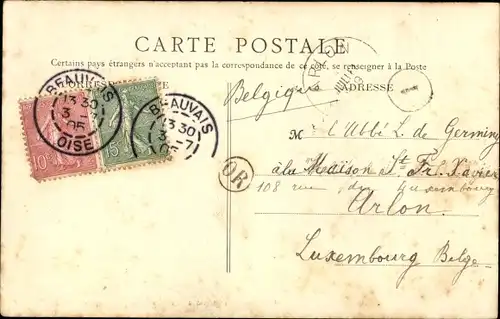 CARTE POSTALE
Certains pays étrangers n'acceptant pas la correspondance de ce côté, se renseigner à la Poste
ADRESSE
BEAUVAIS
13 30
3
05
OISE
BEAUVAIS
13 30
3 - 7
10c
15c
ARLON
Belgique
OR
M l'Abbé L. de Germiny
à la Maison St Fr. Xavier
108 rue du Luxembourg
Arlon.
Luxembourg Belge